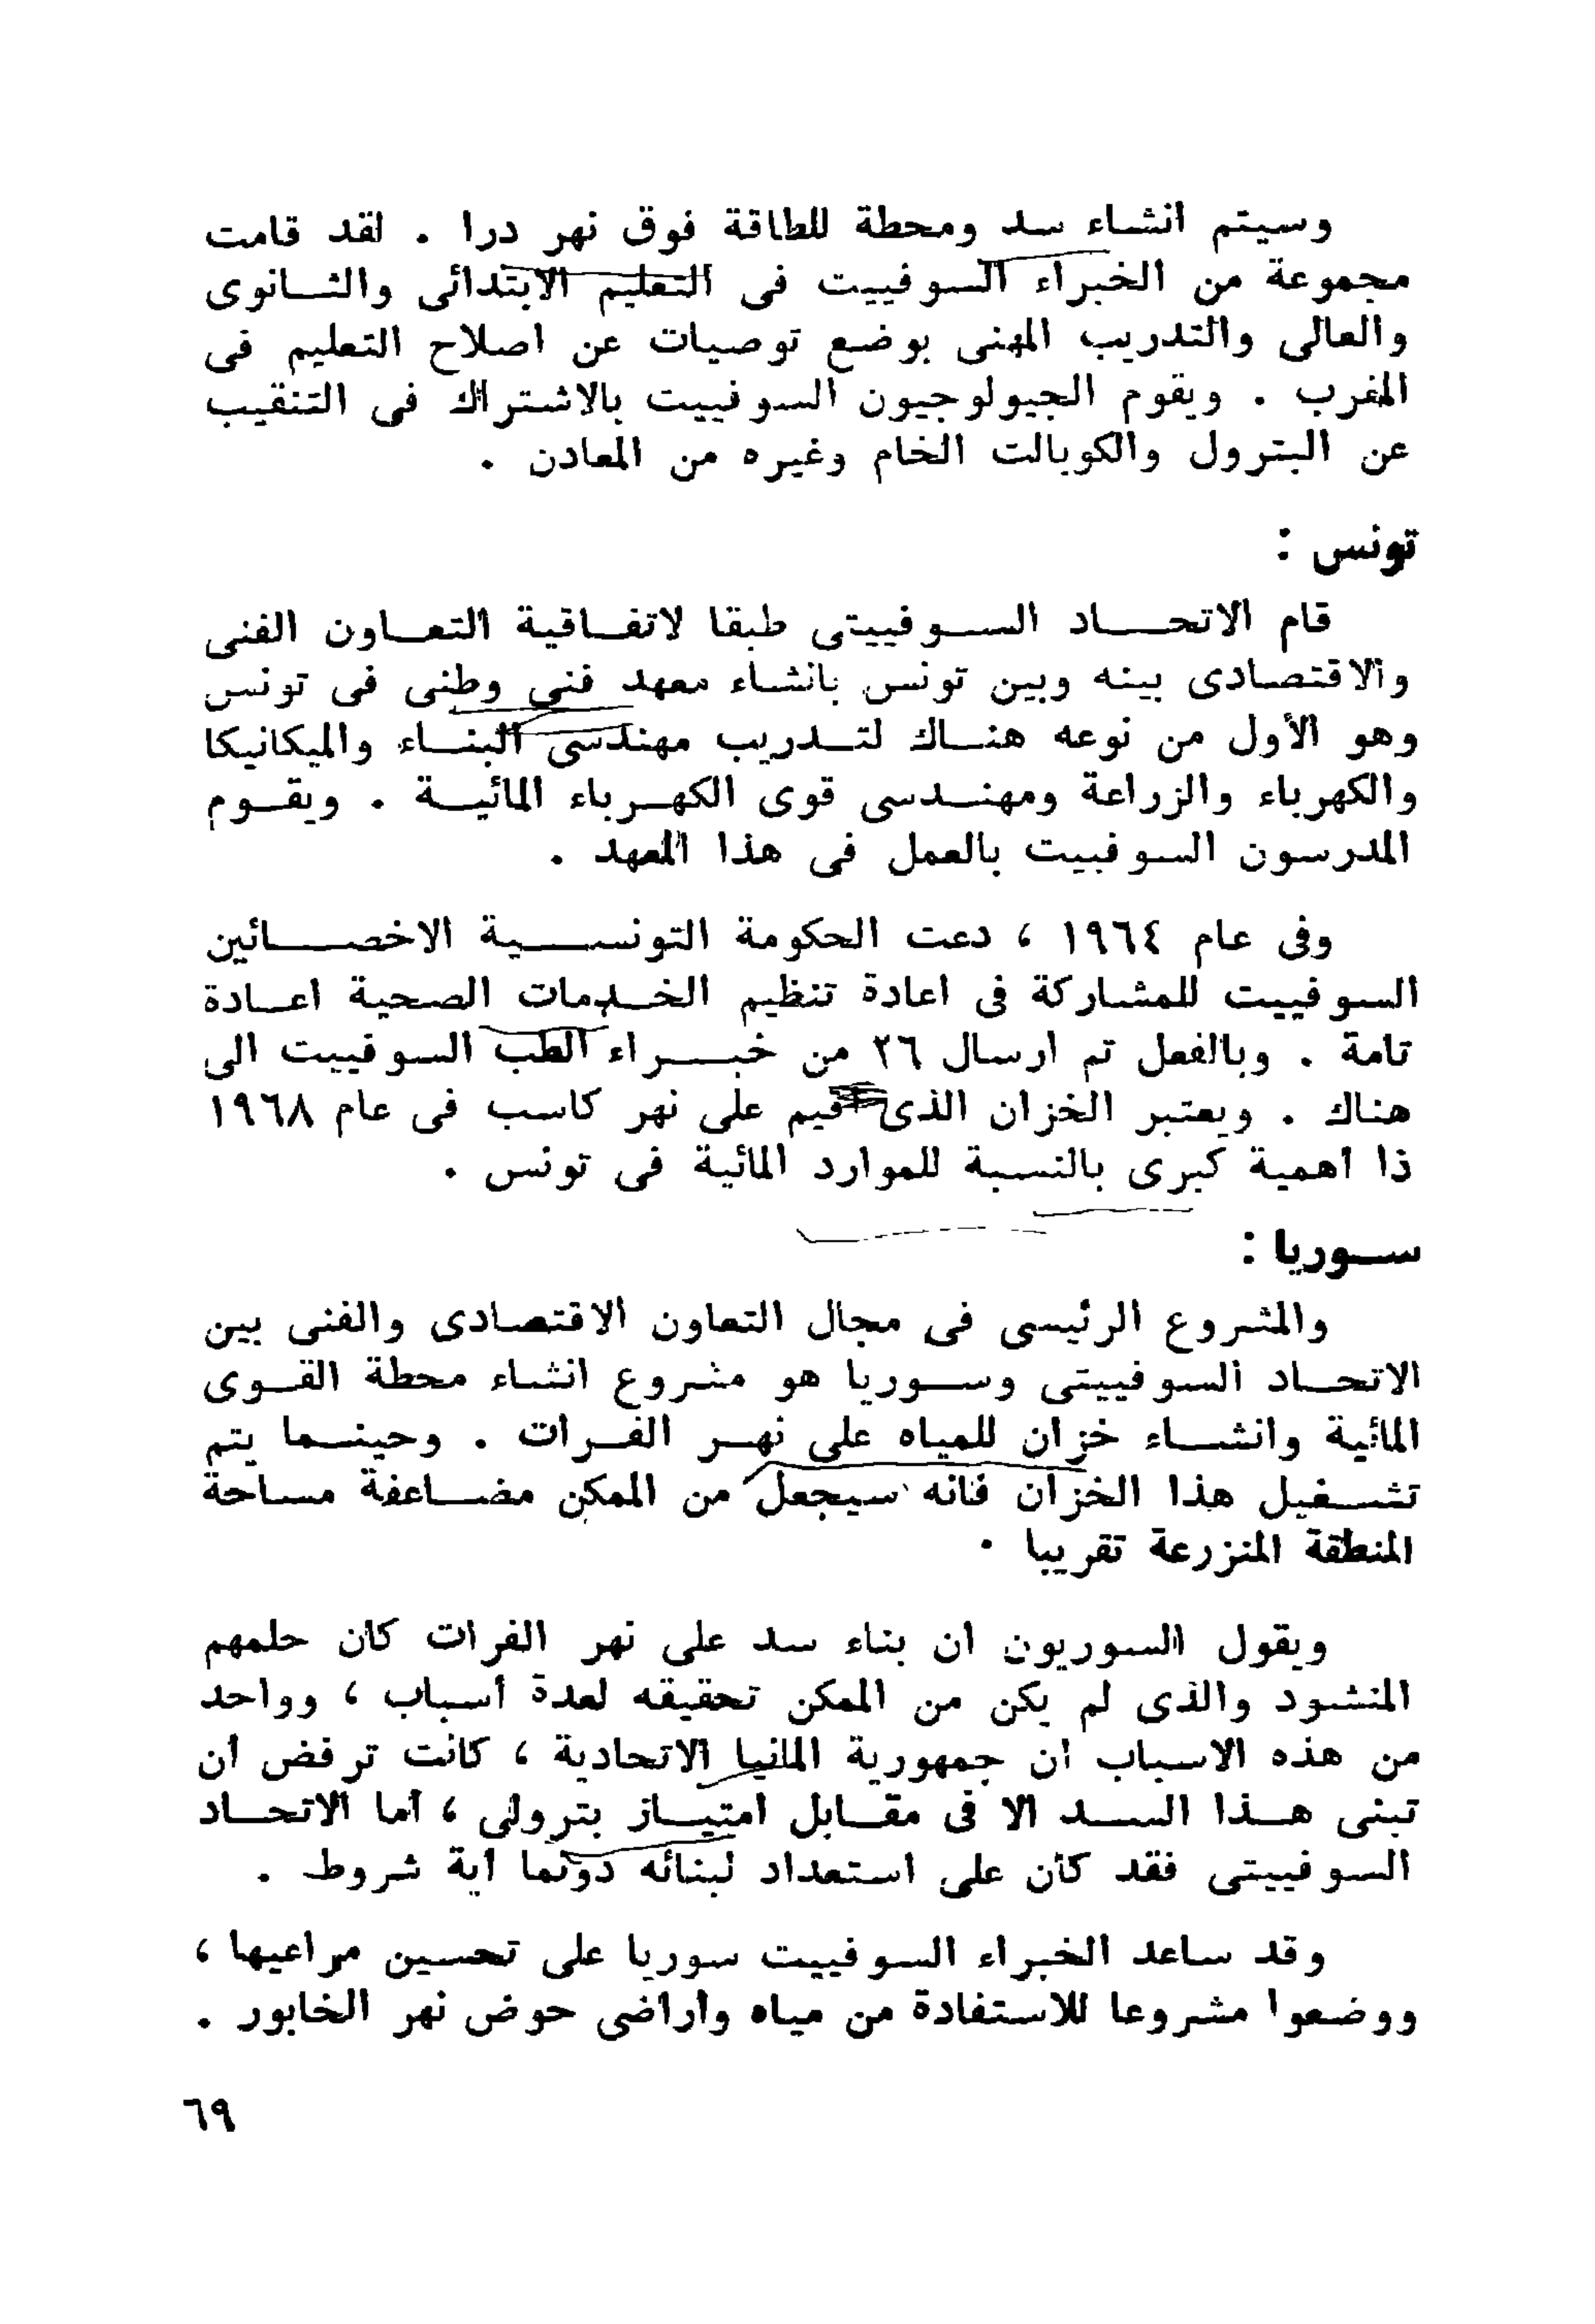 وسيتم انشاء سد ومحطة للطاقة فوق نهر درا . لقد قامت
مجموعة من الخبراء السوفييت فى التعليم الابتدائى والثانوى
والعالى والتدريب المهنى بوضع توصيات عن اصلاح التعليم فى
المغرب . ويقوم الجيولوجيون السوفييت بالاشتراك فى التنقيب
عن البترول والكوبالت الخام وغيره من المعادن .
تونس :
قام الاتحاد السوفييتى طبقا لاتفاقية التعاون الفنى
والاقتصادى بينه وبين تونس بانشاء معهد فنى وطنى فى تونس
وهو الأول من نوعه هناك لتدريب مهندسى البناء والميكانيكا
والكهرباء والزراعة ومهندسى قوى الكهرباء المائية . ويقوم
المدرسون السوفييت بالعمل فى هذا المعهد .
وفى عام ١٩٦٤ ، دعت الحكومة التونسية الاخصائين
السوفييت للمشاركة فى اعادة تنظيم الخدمات الصحية اعادة
تامة . وبالفعل تم ارسال ٢٦ من خبراء الطب السوفييت الى
هناك . ويعتبر الخزان الذى اقيم على نهر كاسب فى عام ١٩٦٨
ذا أهمية كبرى بالنسبة للموارد المائية فى تونس .
سوريا :
والمشروع الرئيسى فى مجال التعاون الاقتصادى والفنى بين
الاتحاد السوفييتى وسوريا هو مشروع انشاء محطة القوى
المائية وانشاء خزان للمياه على نهر الفرات . وحينما يتم
تشغيل هذا الخزان فانه سيجعل من الممكن مضاعفة مساحة
المنطقة المنزرعة تقريبا .
ويقول السوريون ان بناء سد على نهر الفرات كان حلمهم
المنشود والذى لم يكن من الممكن تحقيقه لعدة أسباب ، وواحد
من هذه الاسباب ان جمهورية المانيا الاتحادية ، كانت ترفض أن
تبنى هذا السد الا فى مقابل امتياز بترولى ، أما الاتحاد
السوفييتى فقد كان على استعداد لبنائه دونما أية شروط .
وقد ساعد الخبراء السوفييت سوريا على تحسين مراعيها ،
ووضعوا مشروعا للاستفادة من مياه وأراضى حوض نهر الخابور .
٦٩